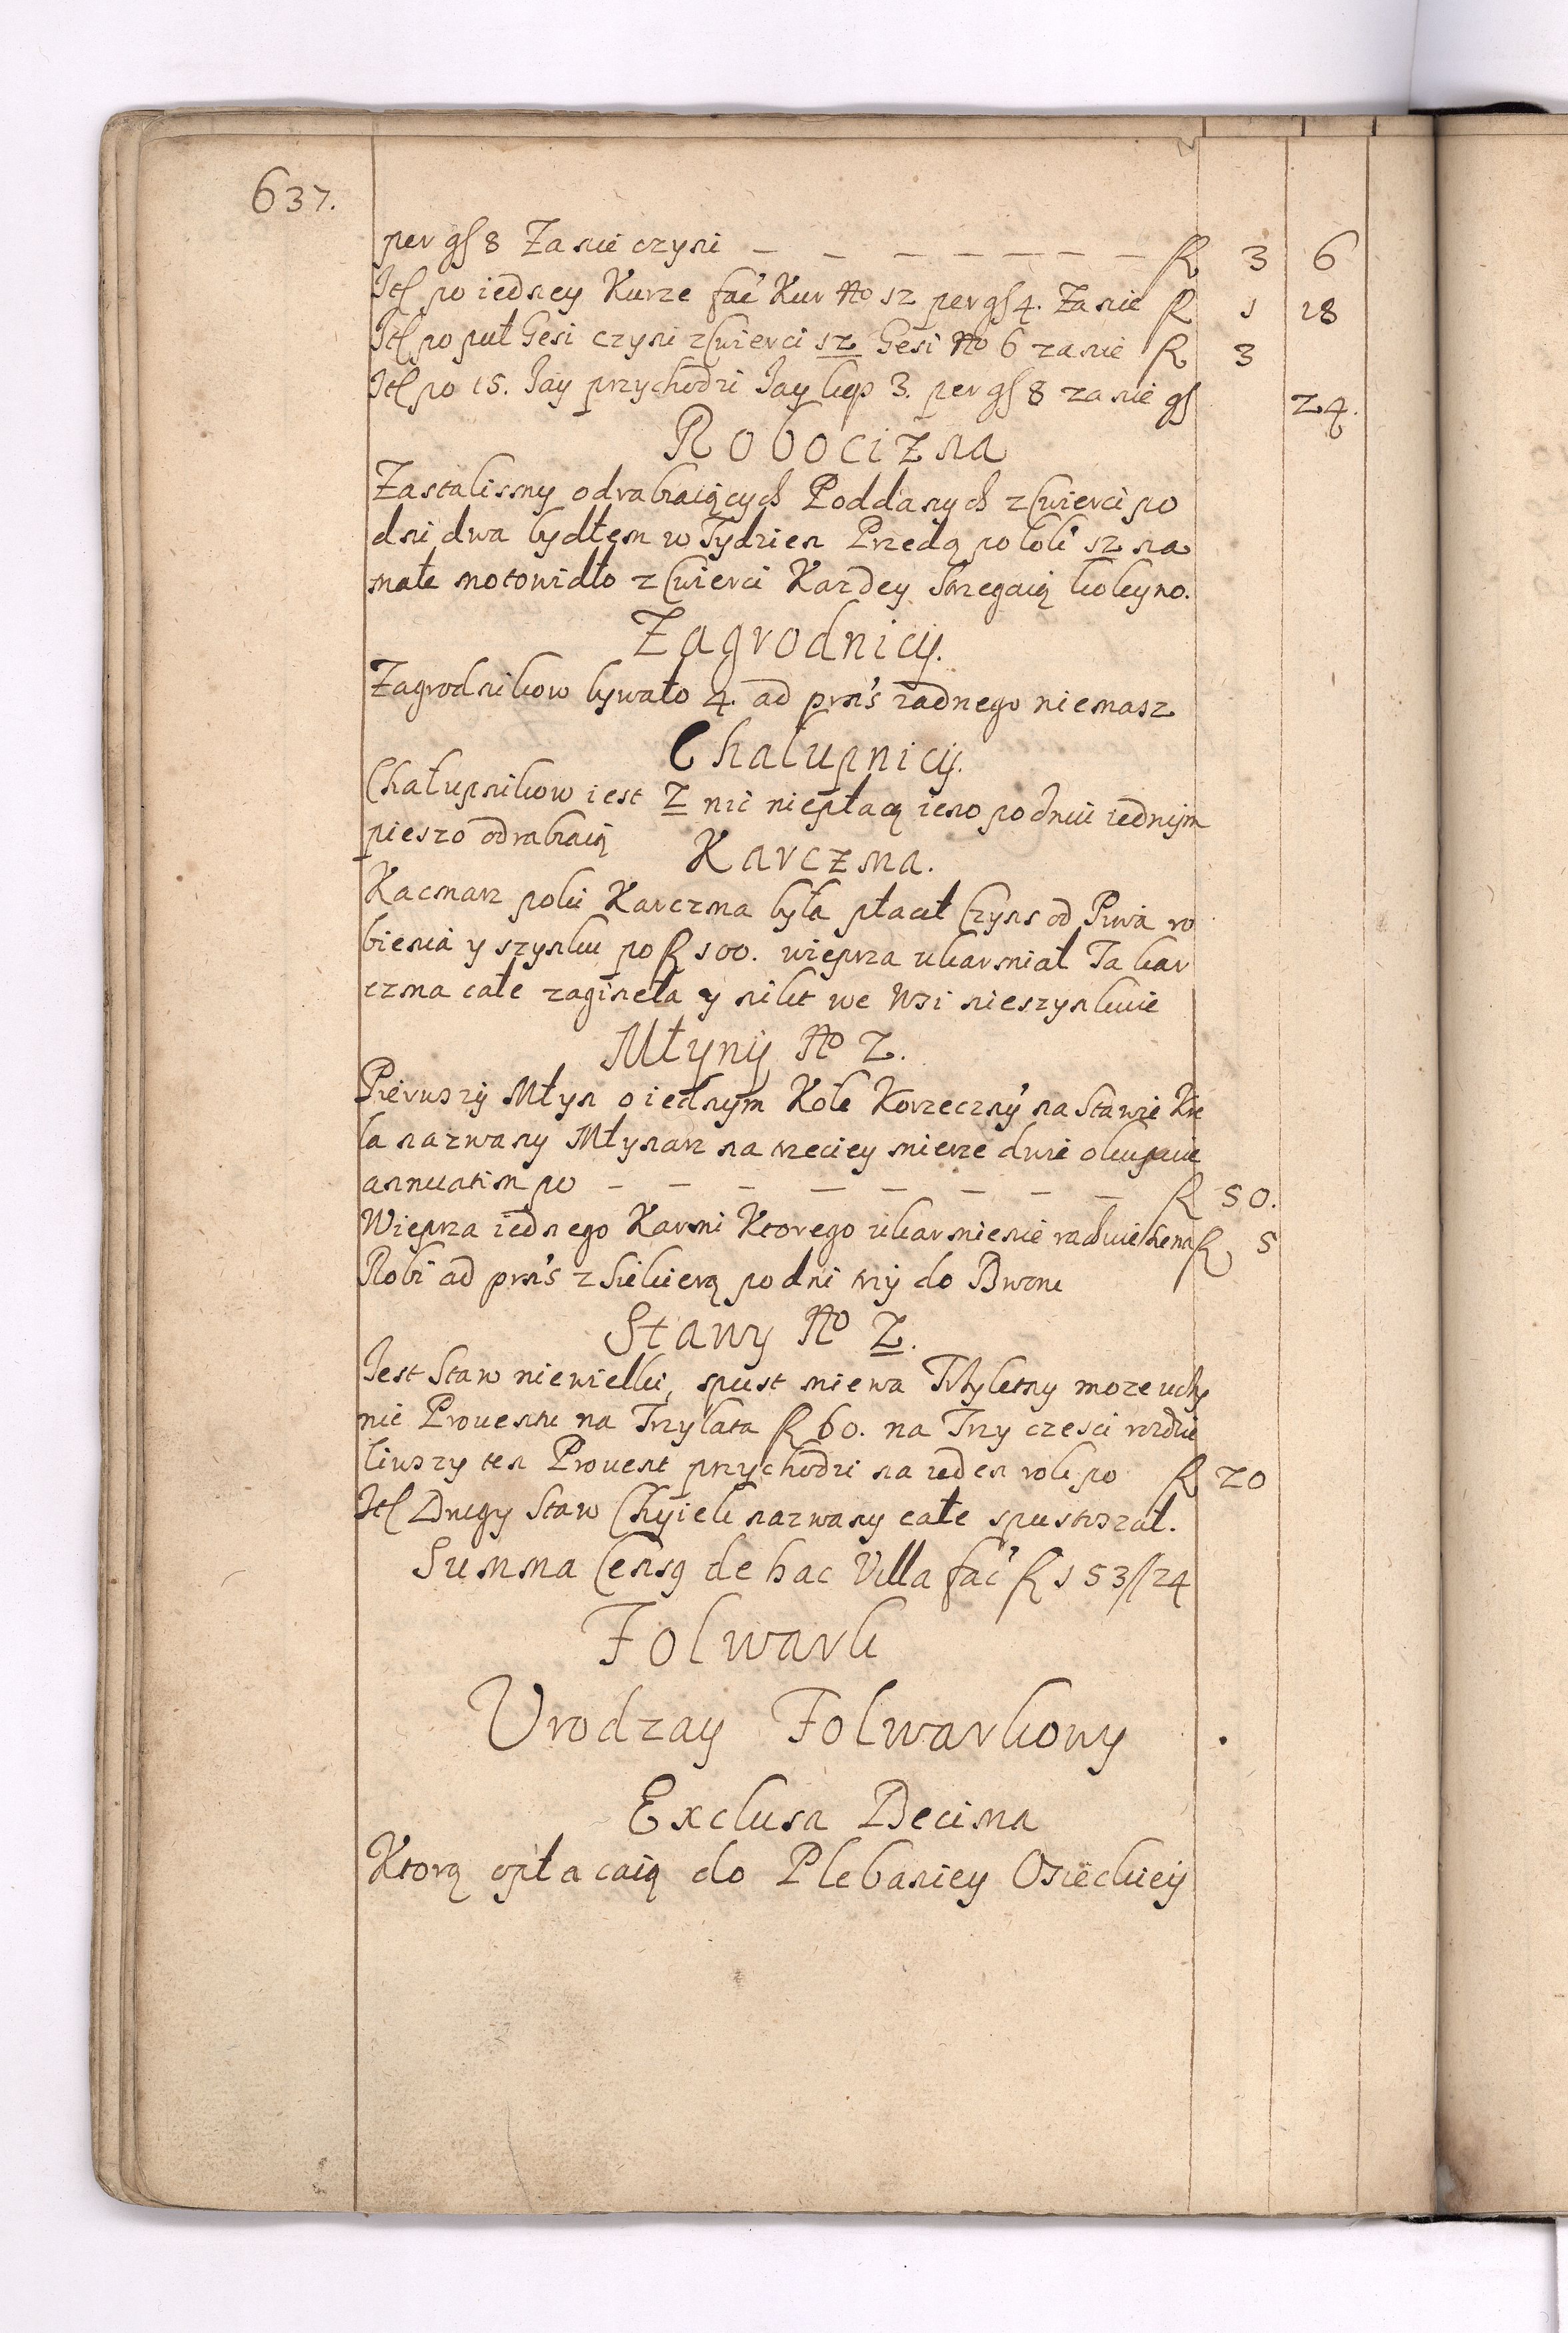 637.
per gſ 8 Za nie czyni – – – – – – – fl 3 6
Itſ po iedney Kurze fać Kur No 12 per gſ 4. Za nie fl 1 18
Itſ po puł Gesi czyni z Cwierci 12 Gesi No 6 za nie fl 3
Itſ po 15. Jay przychodzi Jay kop 3. per gſ 8 za nie gſ 24.
Robocizna
Zastalismy odrabiaiących Poddanych z Cwierci po
dni dwa bydłem w Tydzien Przedą po łokci 12 na
małe motowidło z Cwierci Kazdey Strzegaią koleyno.
Zagrodnicy.
Zagrodnikow bywało 4. ad prns zadnego niemasz
Chalupnicy.
Chałupnikow iest 2 nic niepłacą ieno po dniu iednym
pieszo odrabiaią
Karczma.
Kacmarz poki Karczma była płacił Czyns od Piwa ro
bienia y szynku po fl 100. wieprza ukarmiał Ta kar
czma całe zagineła y nikt we Wsi nieszynkuie
Młyny No 2.
Pierwszy Młyn o iednym Kole Korzeczny na Stawie Kre
la nazwany Młynarz na trzeciey mierze dwie okupuie
annuatim po – – – – – – – – fl 50.
Wieprza iednego Karmi Ktorego ukarmienie fl 5
Robi ad prns z Siekierą po dni trzy do Dworu
Stawy No 2.
Jest Staw niewielki, spust miewa Trzyletny moze uczy
nic Prouentu na Trzy lata fl 60. na Trzy czesci rozdzie
liwszy ten Prouent przychodzi na ieden rok po fl 20
Itſ Drugy Staw Chyiek nazwany całe spustoszał.
Summa Censg de hac Villa fać fl 153/24
Folwark
Vrodzay Folwarkowy
Exclusa Decima
Ktorą opłacaią do Plebaniey Osieckiey